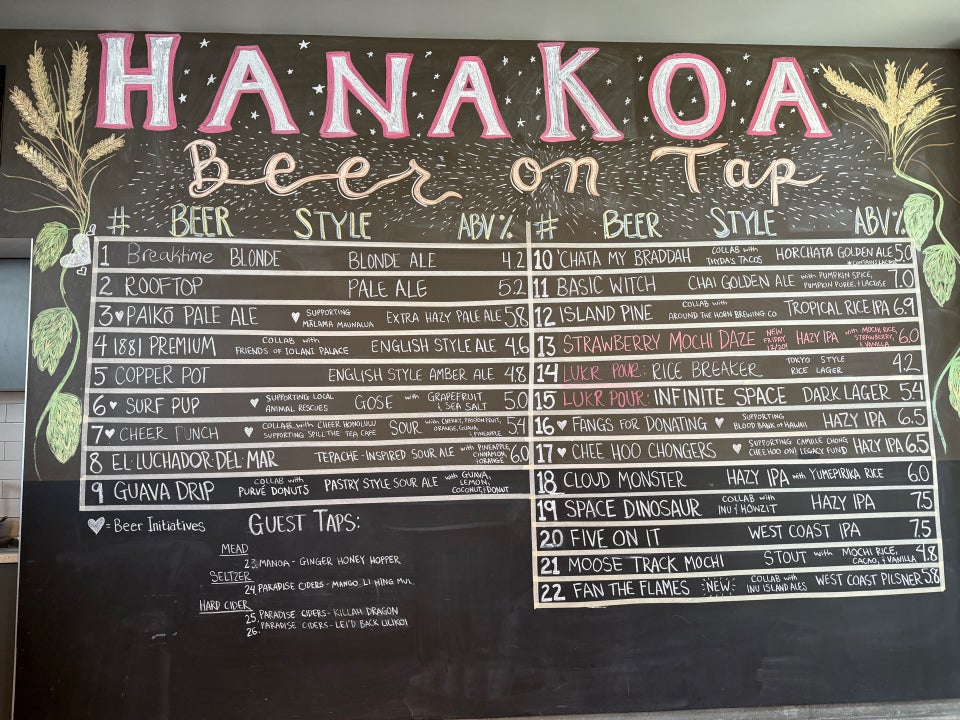 HANAKOA
Beer on Tap
# BEER STYLE ABV%
1 Breaktime BLONDE BLONDE ALE 4.2
2 ROOFTOP PALE ALE 5.2
3 PAIKŌ PALE ALE SUPPORTING MĀLAMA MAUNALUA EXTRA HAZY PALE ALE 5.8
4 1881 PREMIUM COLLAB with FRIENDS OF IOLANI PALACE ENGLISH STYLE ALE 4.6
5 COPPER POT ENGLISH STYLE AMBER ALE 4.8
6 SURF PUP SUPPORTING LOCAL ANIMAL RESCUES GOSE with GRAPEFRUIT & SEA SALT 5.0
7 CHEER PUNCH COLLAB with CHEER HONOLULU SUPPORTING SPILL THE TEA CAFE SOUR with CHERRY, PASSION FRUIT, ORANGE, GUAVA & PINEAPPLE 5.4
8 EL·LUCHADOR·DEL·MAR TEPACHE-INSPIRED SOUR ALE with PINEAPPLE, CINNAMON & ORANGE 6.0
9 GUAVA DRIP COLLAB with PURVÉ DONUTS PASTRY STYLE SOUR ALE with GUAVA, LEMON, COCONUT & DONUT
= Beer Initiatives
GUEST TAPS:
MEAD
23. MANOA - GINGER HONEY HOPPER
SELTZER
24. PARADISE CIDERS - MANGO LI HING MUI
HARD CIDER
25. PARADISE CIDERS - KILLAH DRAGON
26. PARADISE CIDERS - LEI'D BACK LILIKOI
# BEER STYLE ABV%
10 'CHATA MY BRADDAH COLLAB with THYDA'S TACOS HORCHATA GOLDEN ALE 5.0
11 BASIC WITCH CHAI GOLDEN ALE with PUMPKIN SPICE, PUMPKIN PUREE, & LACTOSE 7.0
12 ISLAND PINE COLLAB with AROUND THE HORN BREWING CO TROPICAL RICE IPA 6.9
13 STRAWBERRY MOCHI DAZE NEW FRIDAY 12/20! HAZY IPA with MOCHI RICE, STRAWBERRY, & VANILLA 6.0
14 LUKR POUR: RICE BREAKER TOKYO STYLE RICE LAGER 4.2
15 LUKR POUR: INFINITE SPACE DARK LAGER 5.4
16 FANGS FOR DONATING SUPPORTING BLOOD BANK OF HAWAII HAZY IPA 6.5
17 CHEE HOO CHONGERS SUPPORTING CAMILLE CHONG CHEE HOO ON! LEGACY FUND HAZY IPA 6.5
18 CLOUD MONSTER HAZY IPA with YUMEPIRIKA RICE 6.0
19 SPACE DINOSAUR COLLAB with INU & HOWZIT HAZY IPA 7.5
20 FIVE ON IT WEST COAST IPA 7.5
21 MOOSE TRACK MOCHI STOUT with MOCHI RICE, CACAO, & VANILLA 4.8
22 FAN THE FLAMES NEW COLLAB with INU ISLAND ALES WEST COAST PILSNER 5.8